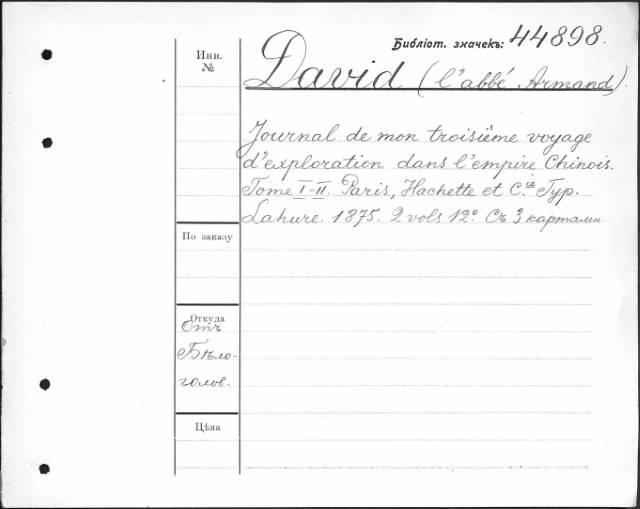 Библіот. значекъ: 44898.
Инв. №
David (l'abbé Armand).
Journal de mon troisième voyage
d'exploration dans l'empire Chinois.
Tome I-II. Paris, Hachette et Cie Typ.
Lahure. 1875. 2 vols 12º. Съ 3 картами.
По заказу
Откуда
Отъ
Бѣло-
голов.
Цѣна